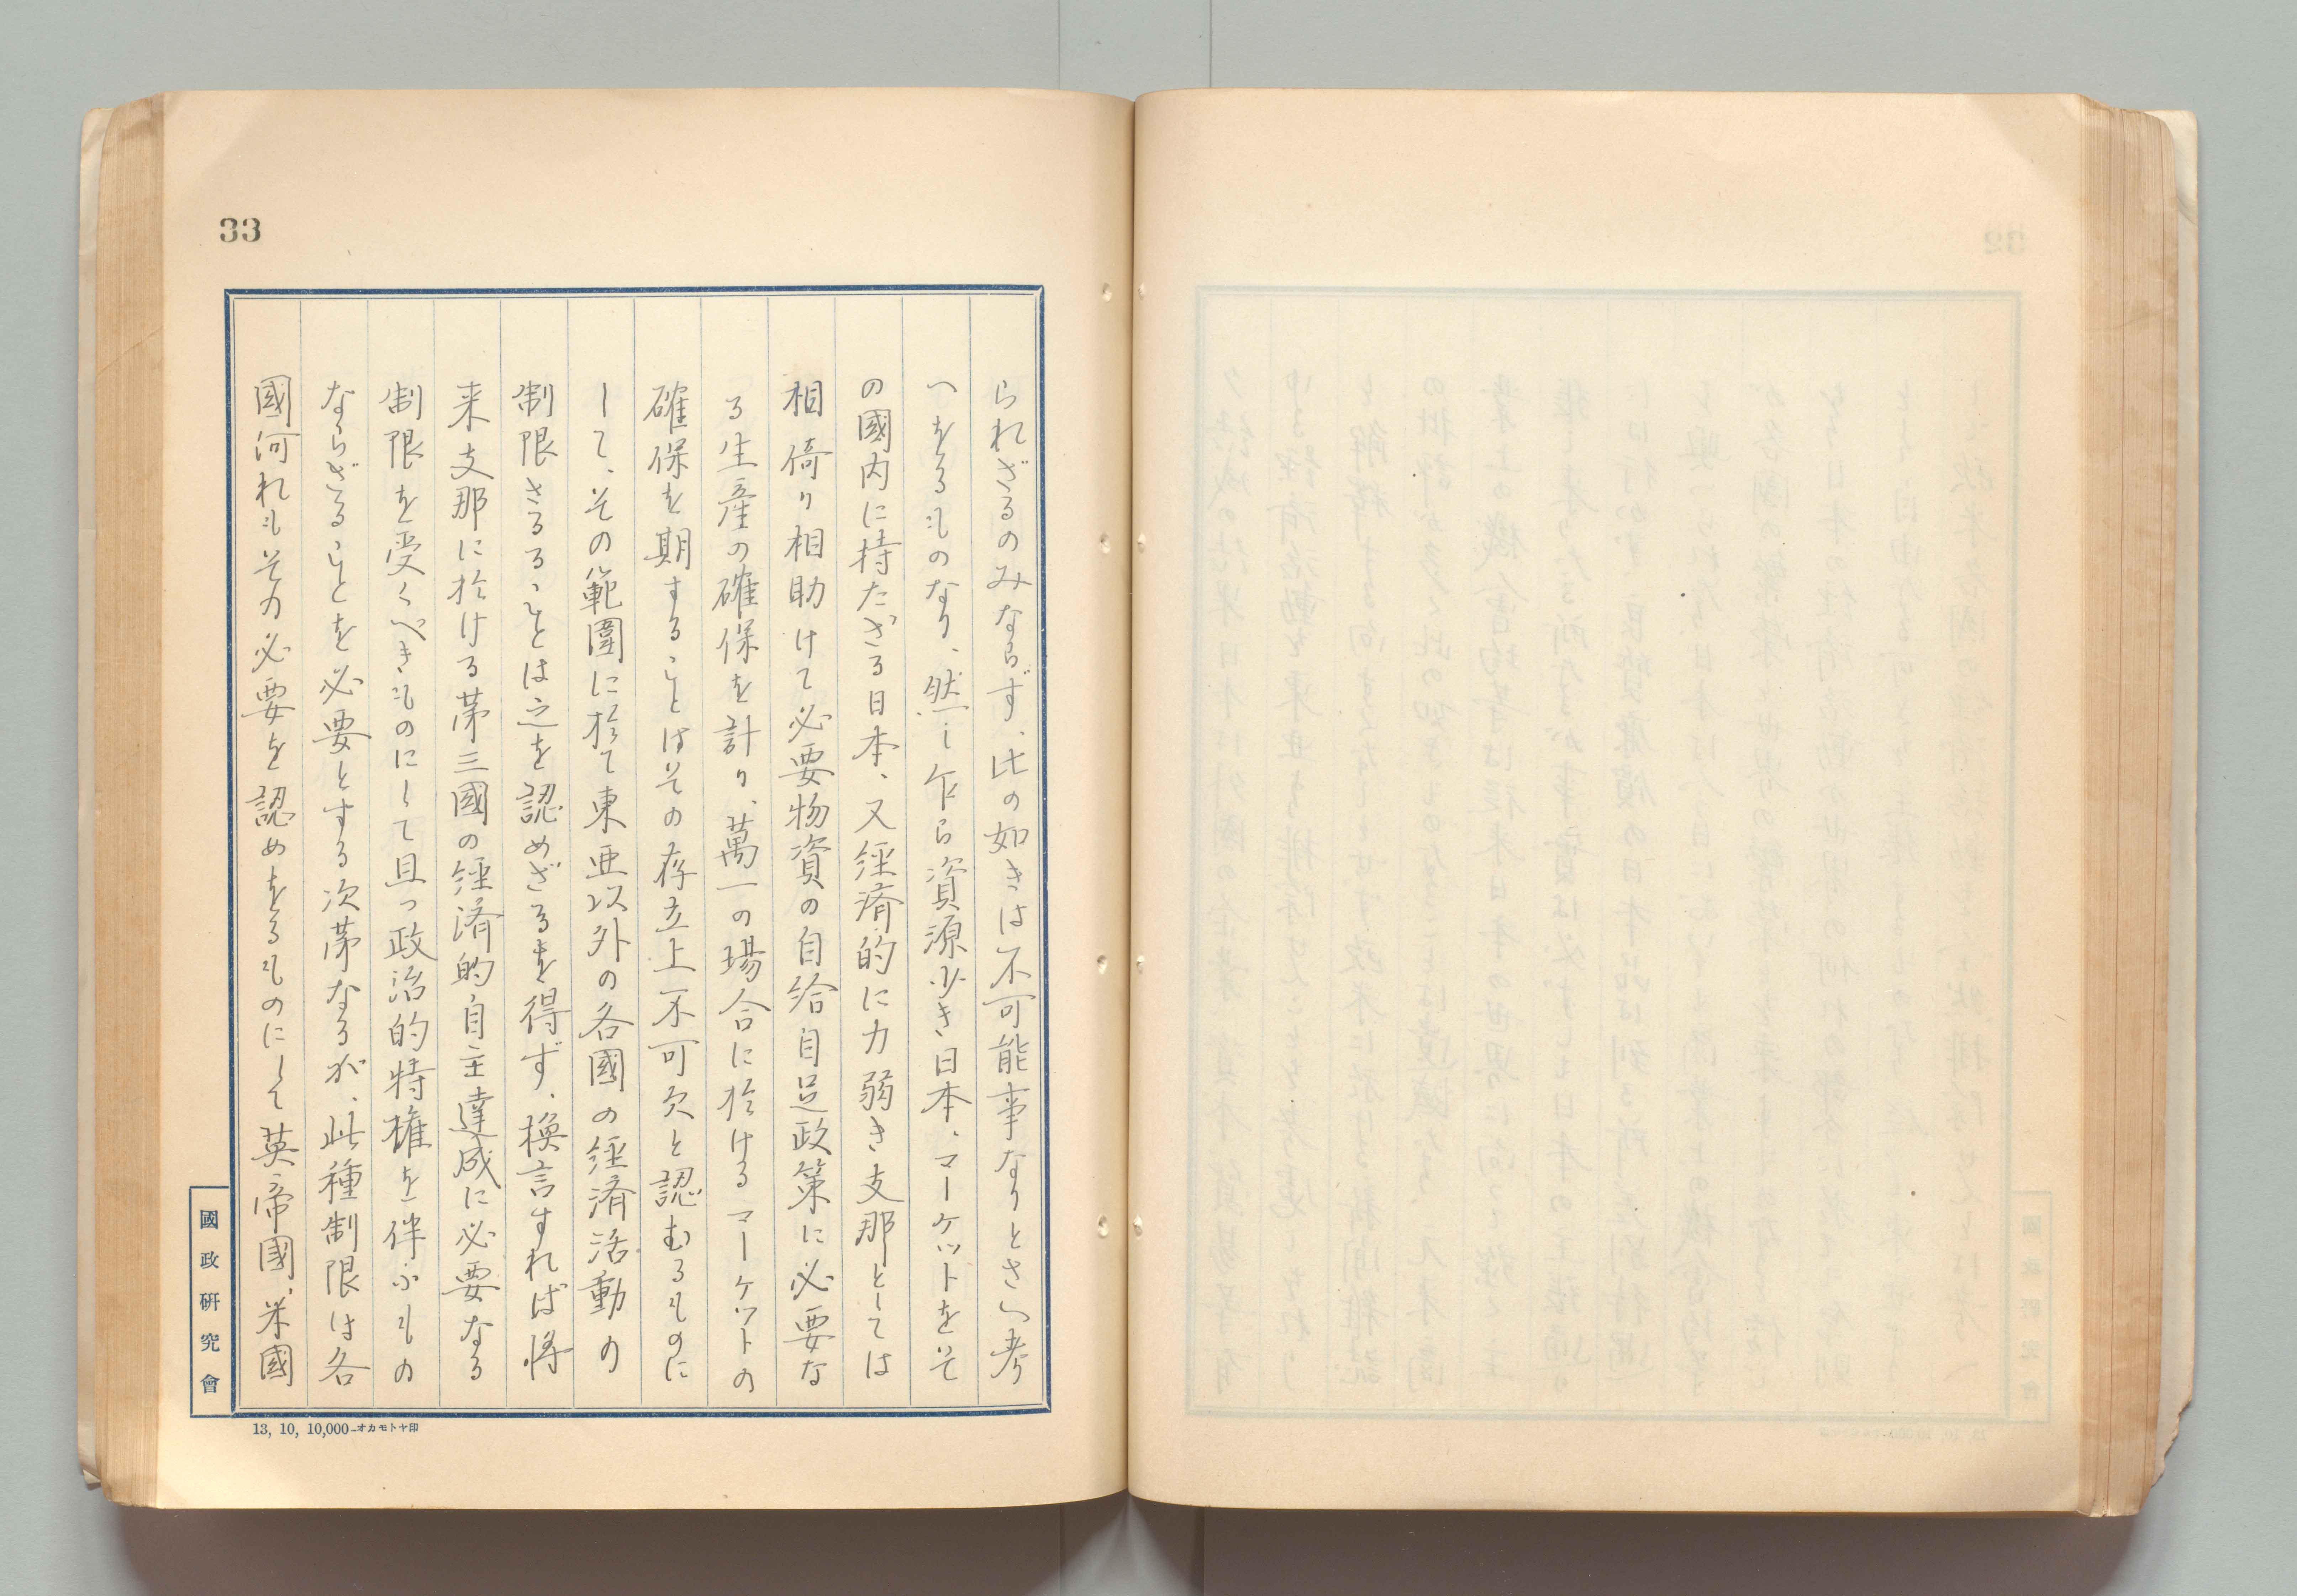 33
られざるのみならず、此の如きは不可能事なりとさへ考
へをるものなり、然し乍ら資源少き日本、マーケットをそ
の國内に持たざる日本、又経済的に力弱き支那としては
相倚り相助けて必要物資の自給自足政策に必要な
る生産の確保を計り、萬一の場合に於けるマーケットの
確保を期することはその存立上不可欠と認むるものに
して、その範圍に於て東亜以外の各國の経済活動の
制限さるゝことは之を認めざるを得ず、換言すれば将
来支那に於ける第三國の経済的自主達成に必要なる
制限を受くべきものにして且つ政治的特権を伴ふもの
ならざることを必要とする次第なるが、此種制限は各
國何れもその必要を認めをるものにして英帝國、米國
國政研究會
13, 10, 10,000—オカモトヤ印